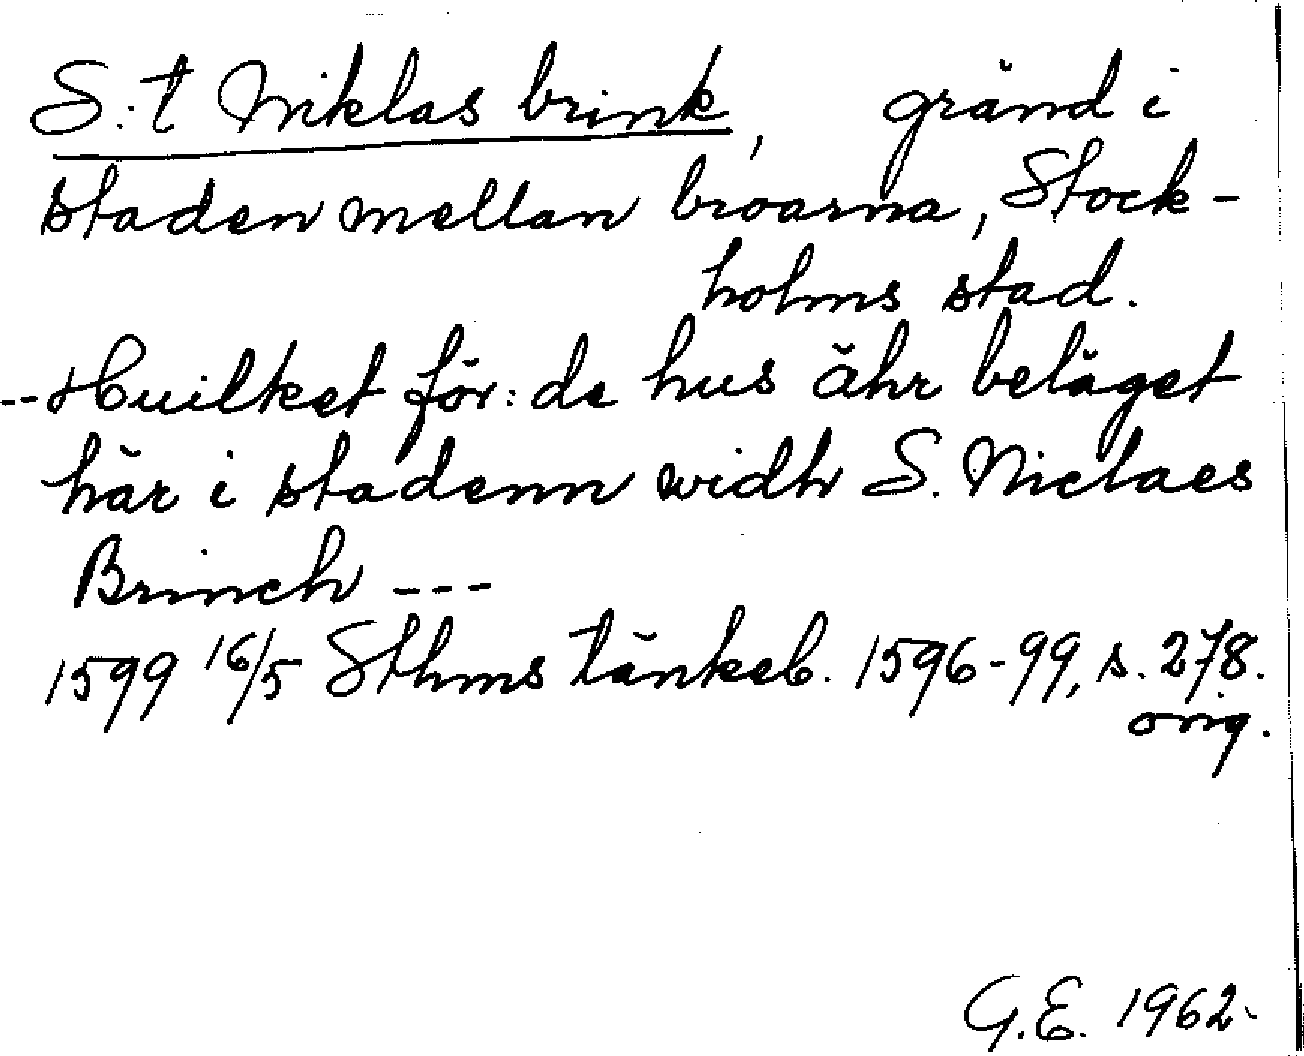 S:t Niklas brink, gränd i
staden mellan broarna, Stock-
holms stad.
-- Huilket för:de hus ähr beläget
här i stadenn widh S. Niclaes
Brinch ---
1599 16/5 Sthms tänkeb. 1596-99, s. 278.
orig.
G.E. 1962.